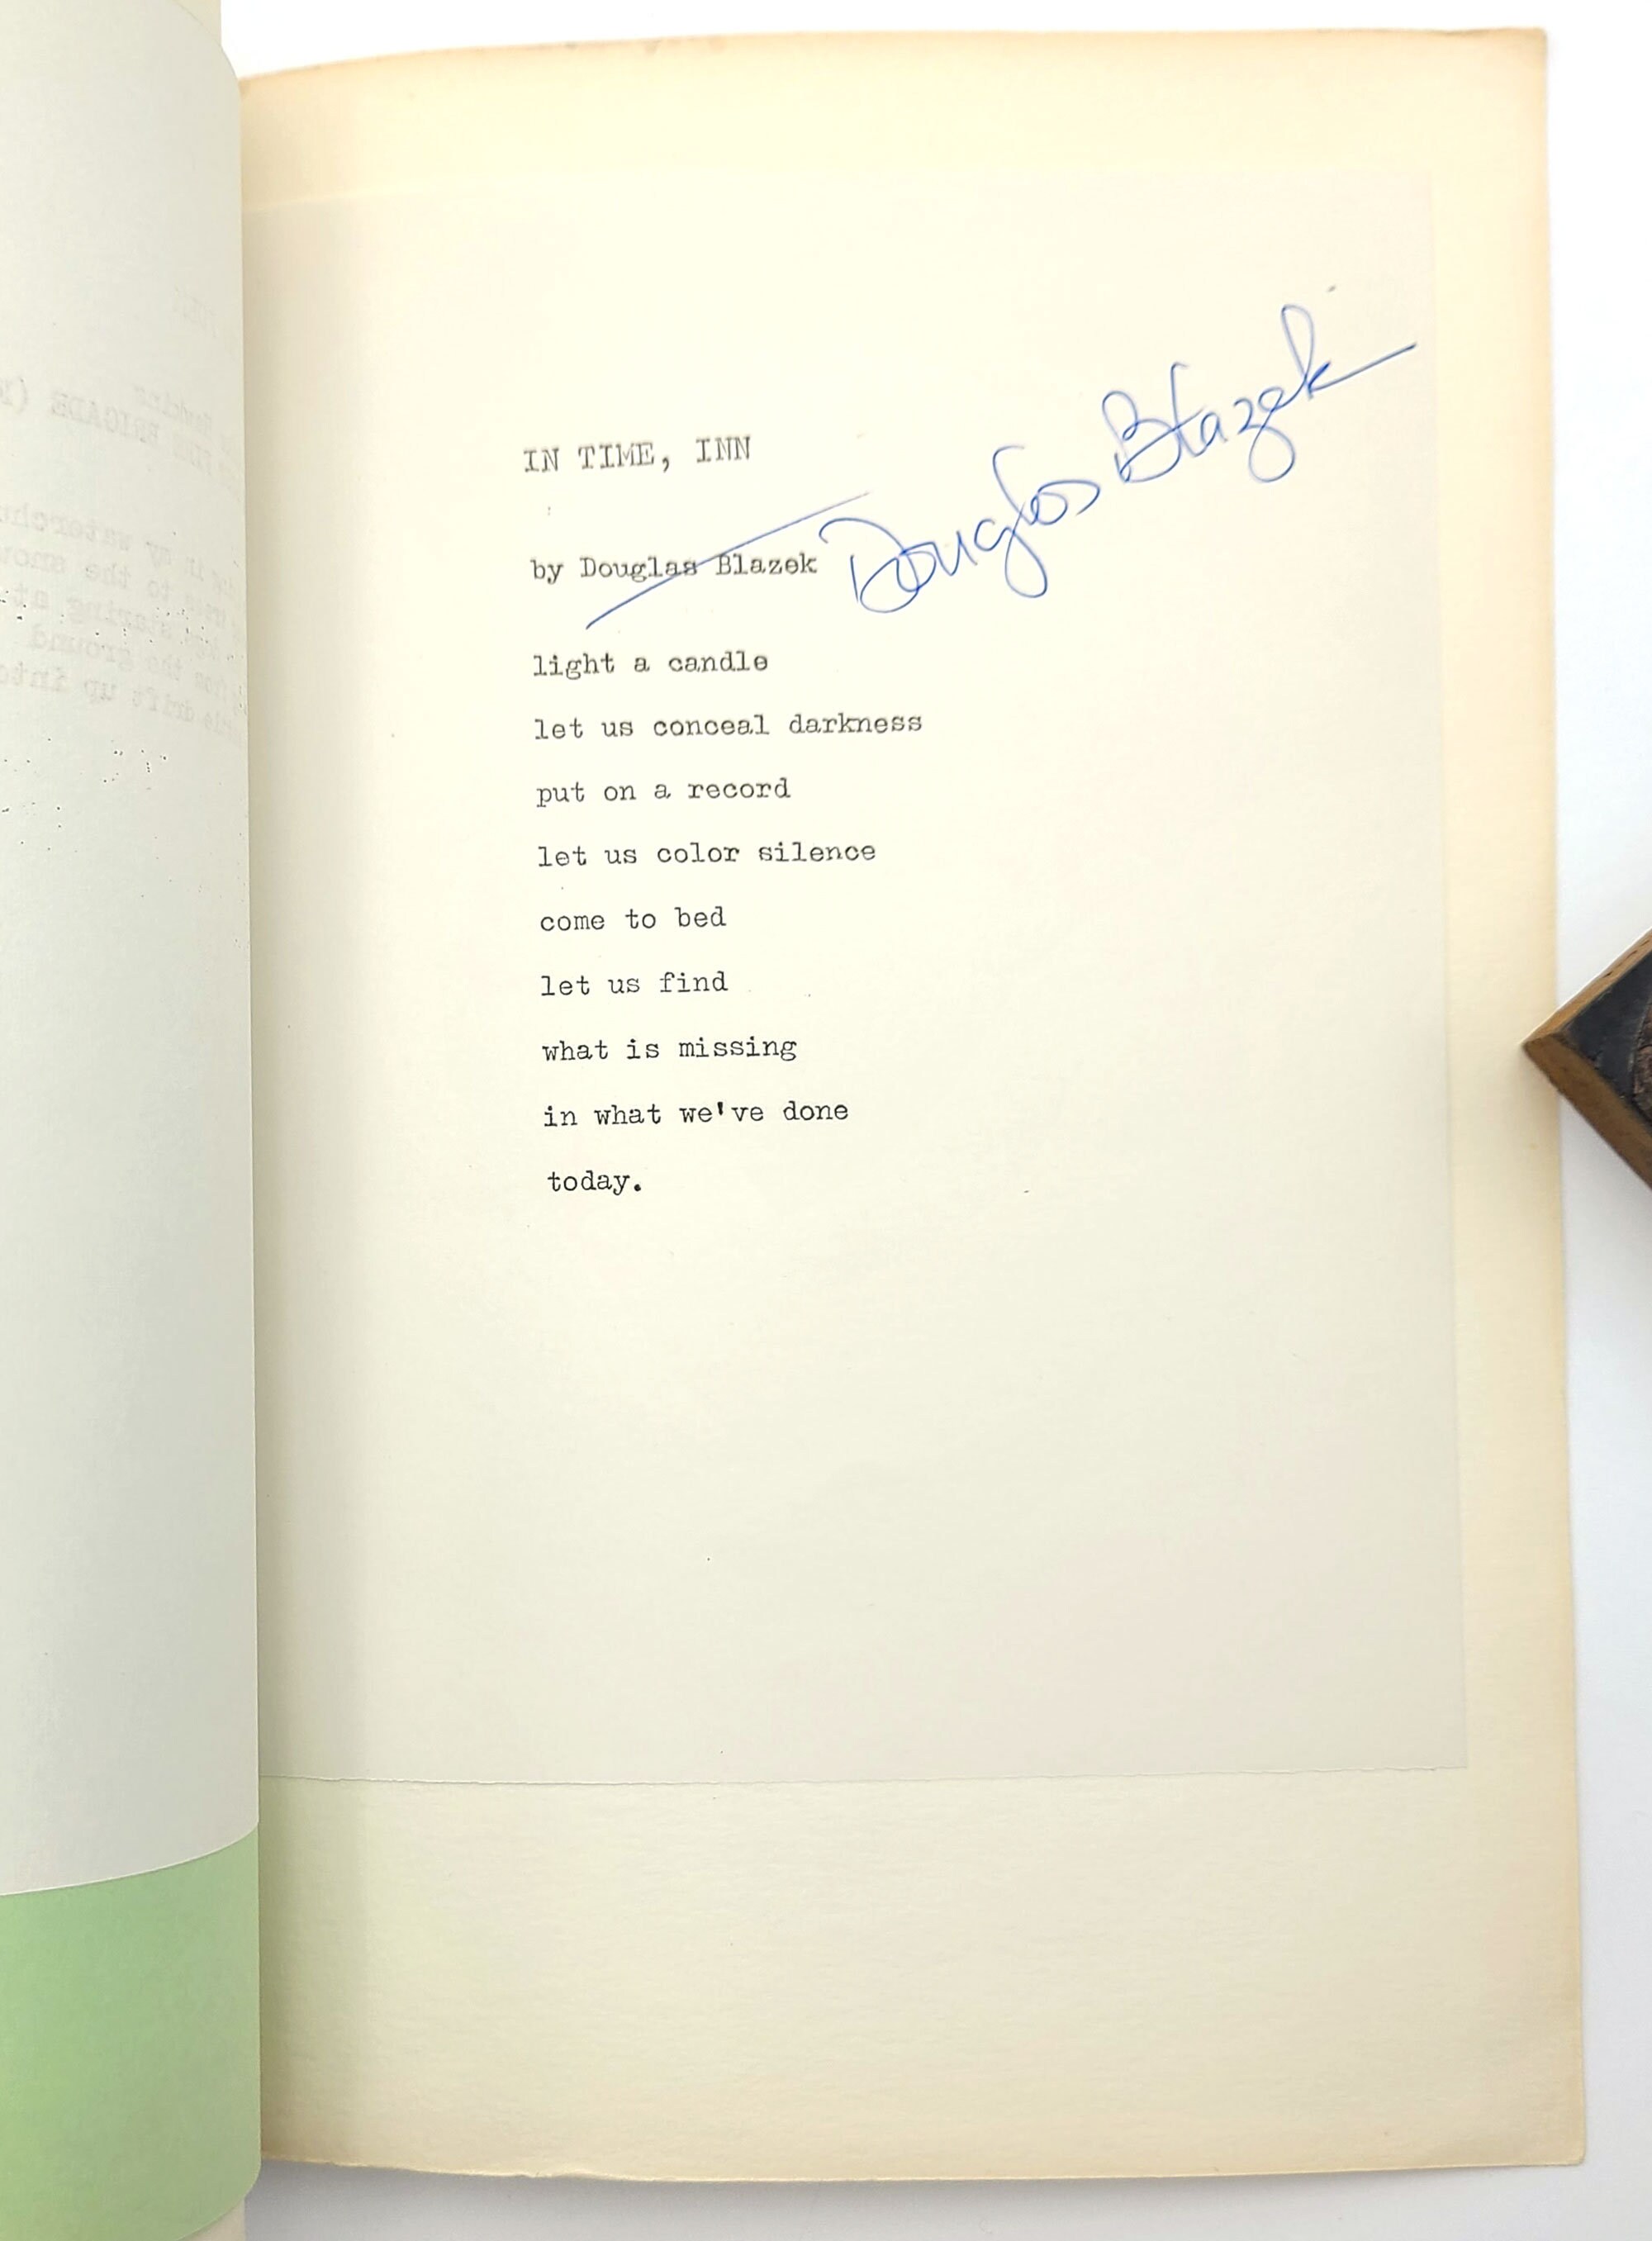 IN TIME, INN
by Douglas Blazek
Douglas Blazek
light a candle
let us conceal darkness
put on a record
let us color silence
come to bed
let us find
what is missing
in what we've done
today.